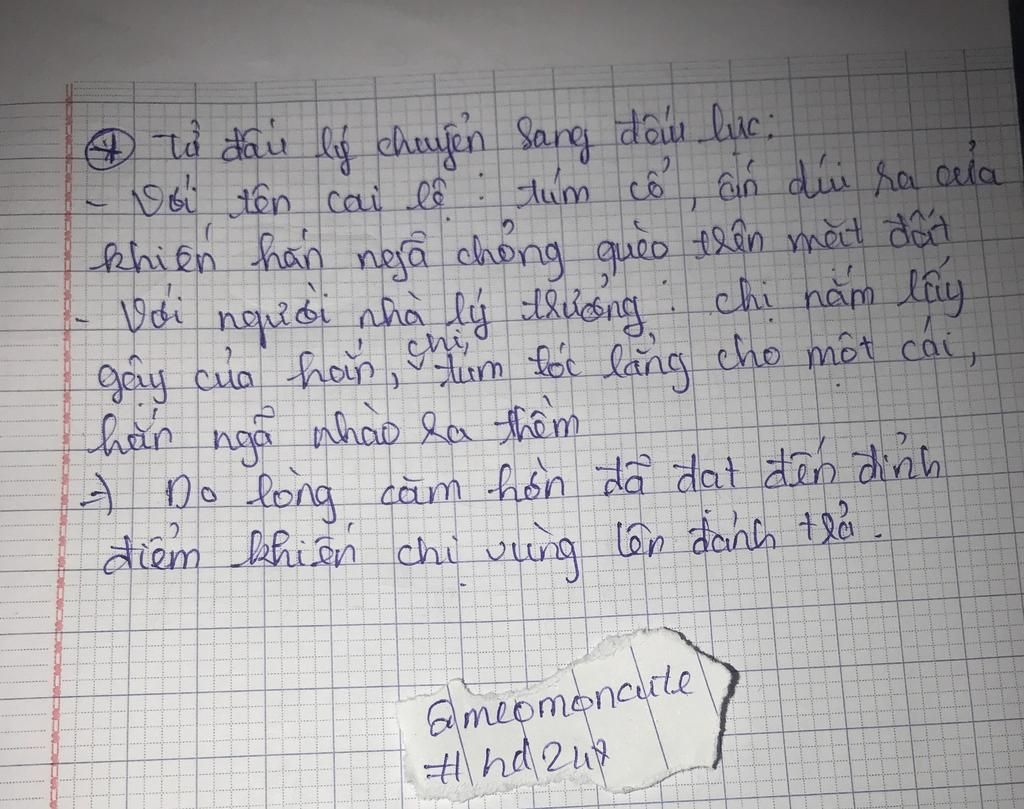 (+) Từ đấu lý chuyển sang đấu lực:
- Với tên cai lệ : túm cổ, ấn dúi ra cửa
khiến hắn ngã chỏng quèo trên mặt đất
- Với người nhà lý trưởng : chị nắm lấy
gậy của hắn, chị túm tóc lẳng cho một cái,
hắn ngã nhào ra thềm
=> Do lòng căm hờn đã đạt đến đỉnh
điểm khiến chị vùng lên đánh trả.
@meomoncute
#hd247